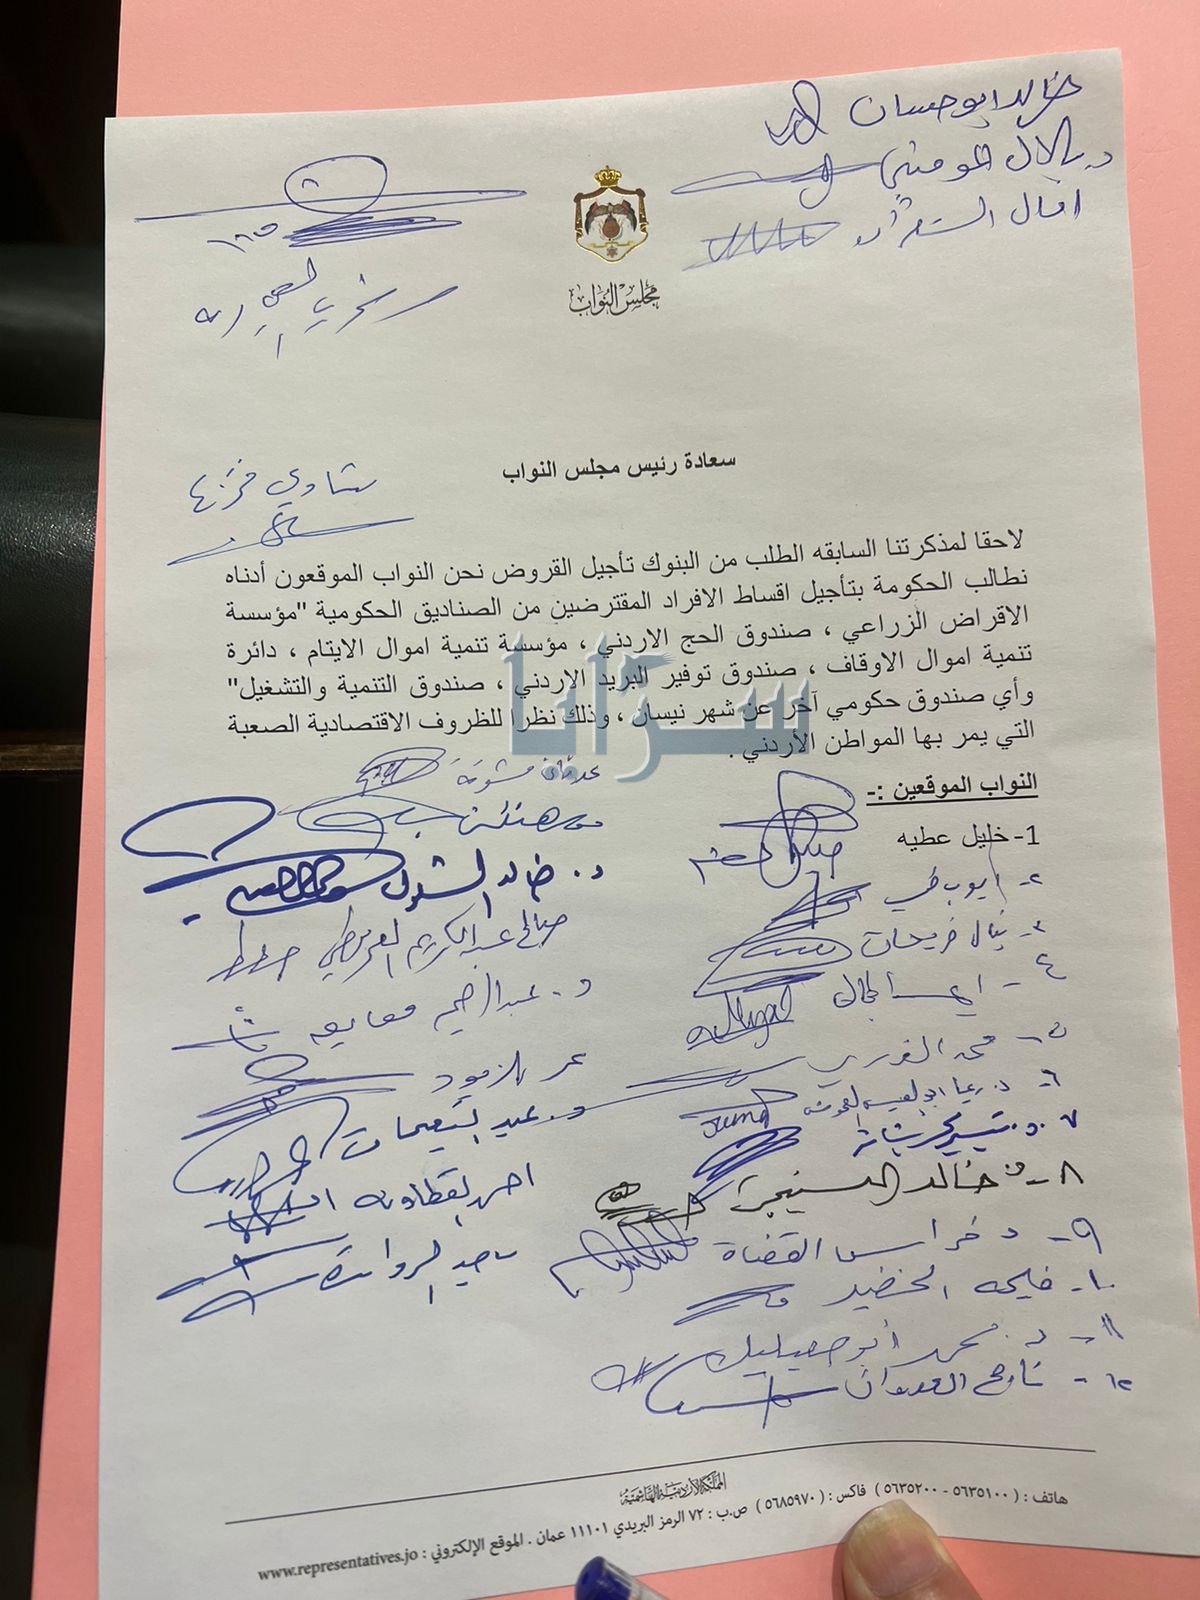 خالد ابو حسان
د. بلال المومني
مجلس النواب
شادي فريج
سعادة رئيس مجلس النواب
لاحقا لمذكرتنا السابقه الطلب من البنوك تأجيل القروض نحن النواب الموقعون أدناه
نطالب الحكومة بتأجيل اقساط الافراد المقترضين من الصناديق الحكومية "مؤسسة
الاقراض الزراعي ، صندوق الحج الاردني ، مؤسسة تنمية اموال الايتام ، دائرة
تنمية اموال الاوقاف ، صندوق توفير البريد الاردني ، صندوق التنمية والتشغيل"
وأي صندوق حكومي آخر عن شهر نيسان ، وذلك نظرا للظروف الاقتصادية الصعبة
التي يمر بها المواطن الأردني .
سرايا
النواب الموقعين :-
1- خليل عطيه
٢- ايوب
٣- نيال فريحات
٤-
٥- محمد
٦- د. ريما ابو العيس
٧- د.
٨- خالد
٩- د فراس القضاة
١٠- فليحه الخضير
١١- د. محمد ابو صعيليك
١٢- ناجح العدوان
عدنان مشوقة
د. خالد الشلول
صالح عبدالكريم العرموطي
د. عبدالرحيم معايعه
عمر الزيود
د. عيد النعيمات
احمد القطاونه
ماجد الرواشدة
المملكة الأردنية الهاشمية
هاتف : ( ٥٦٣٥١٠٠ - ٥٦٣٥٢٠٠ ) فاكس : ( ٥٦٨٥٩٧٠ ) ص.ب : ٧٢ الرمز البريدي ١١١٠١ عمان . الموقع الإلكتروني : www.representatives.jo